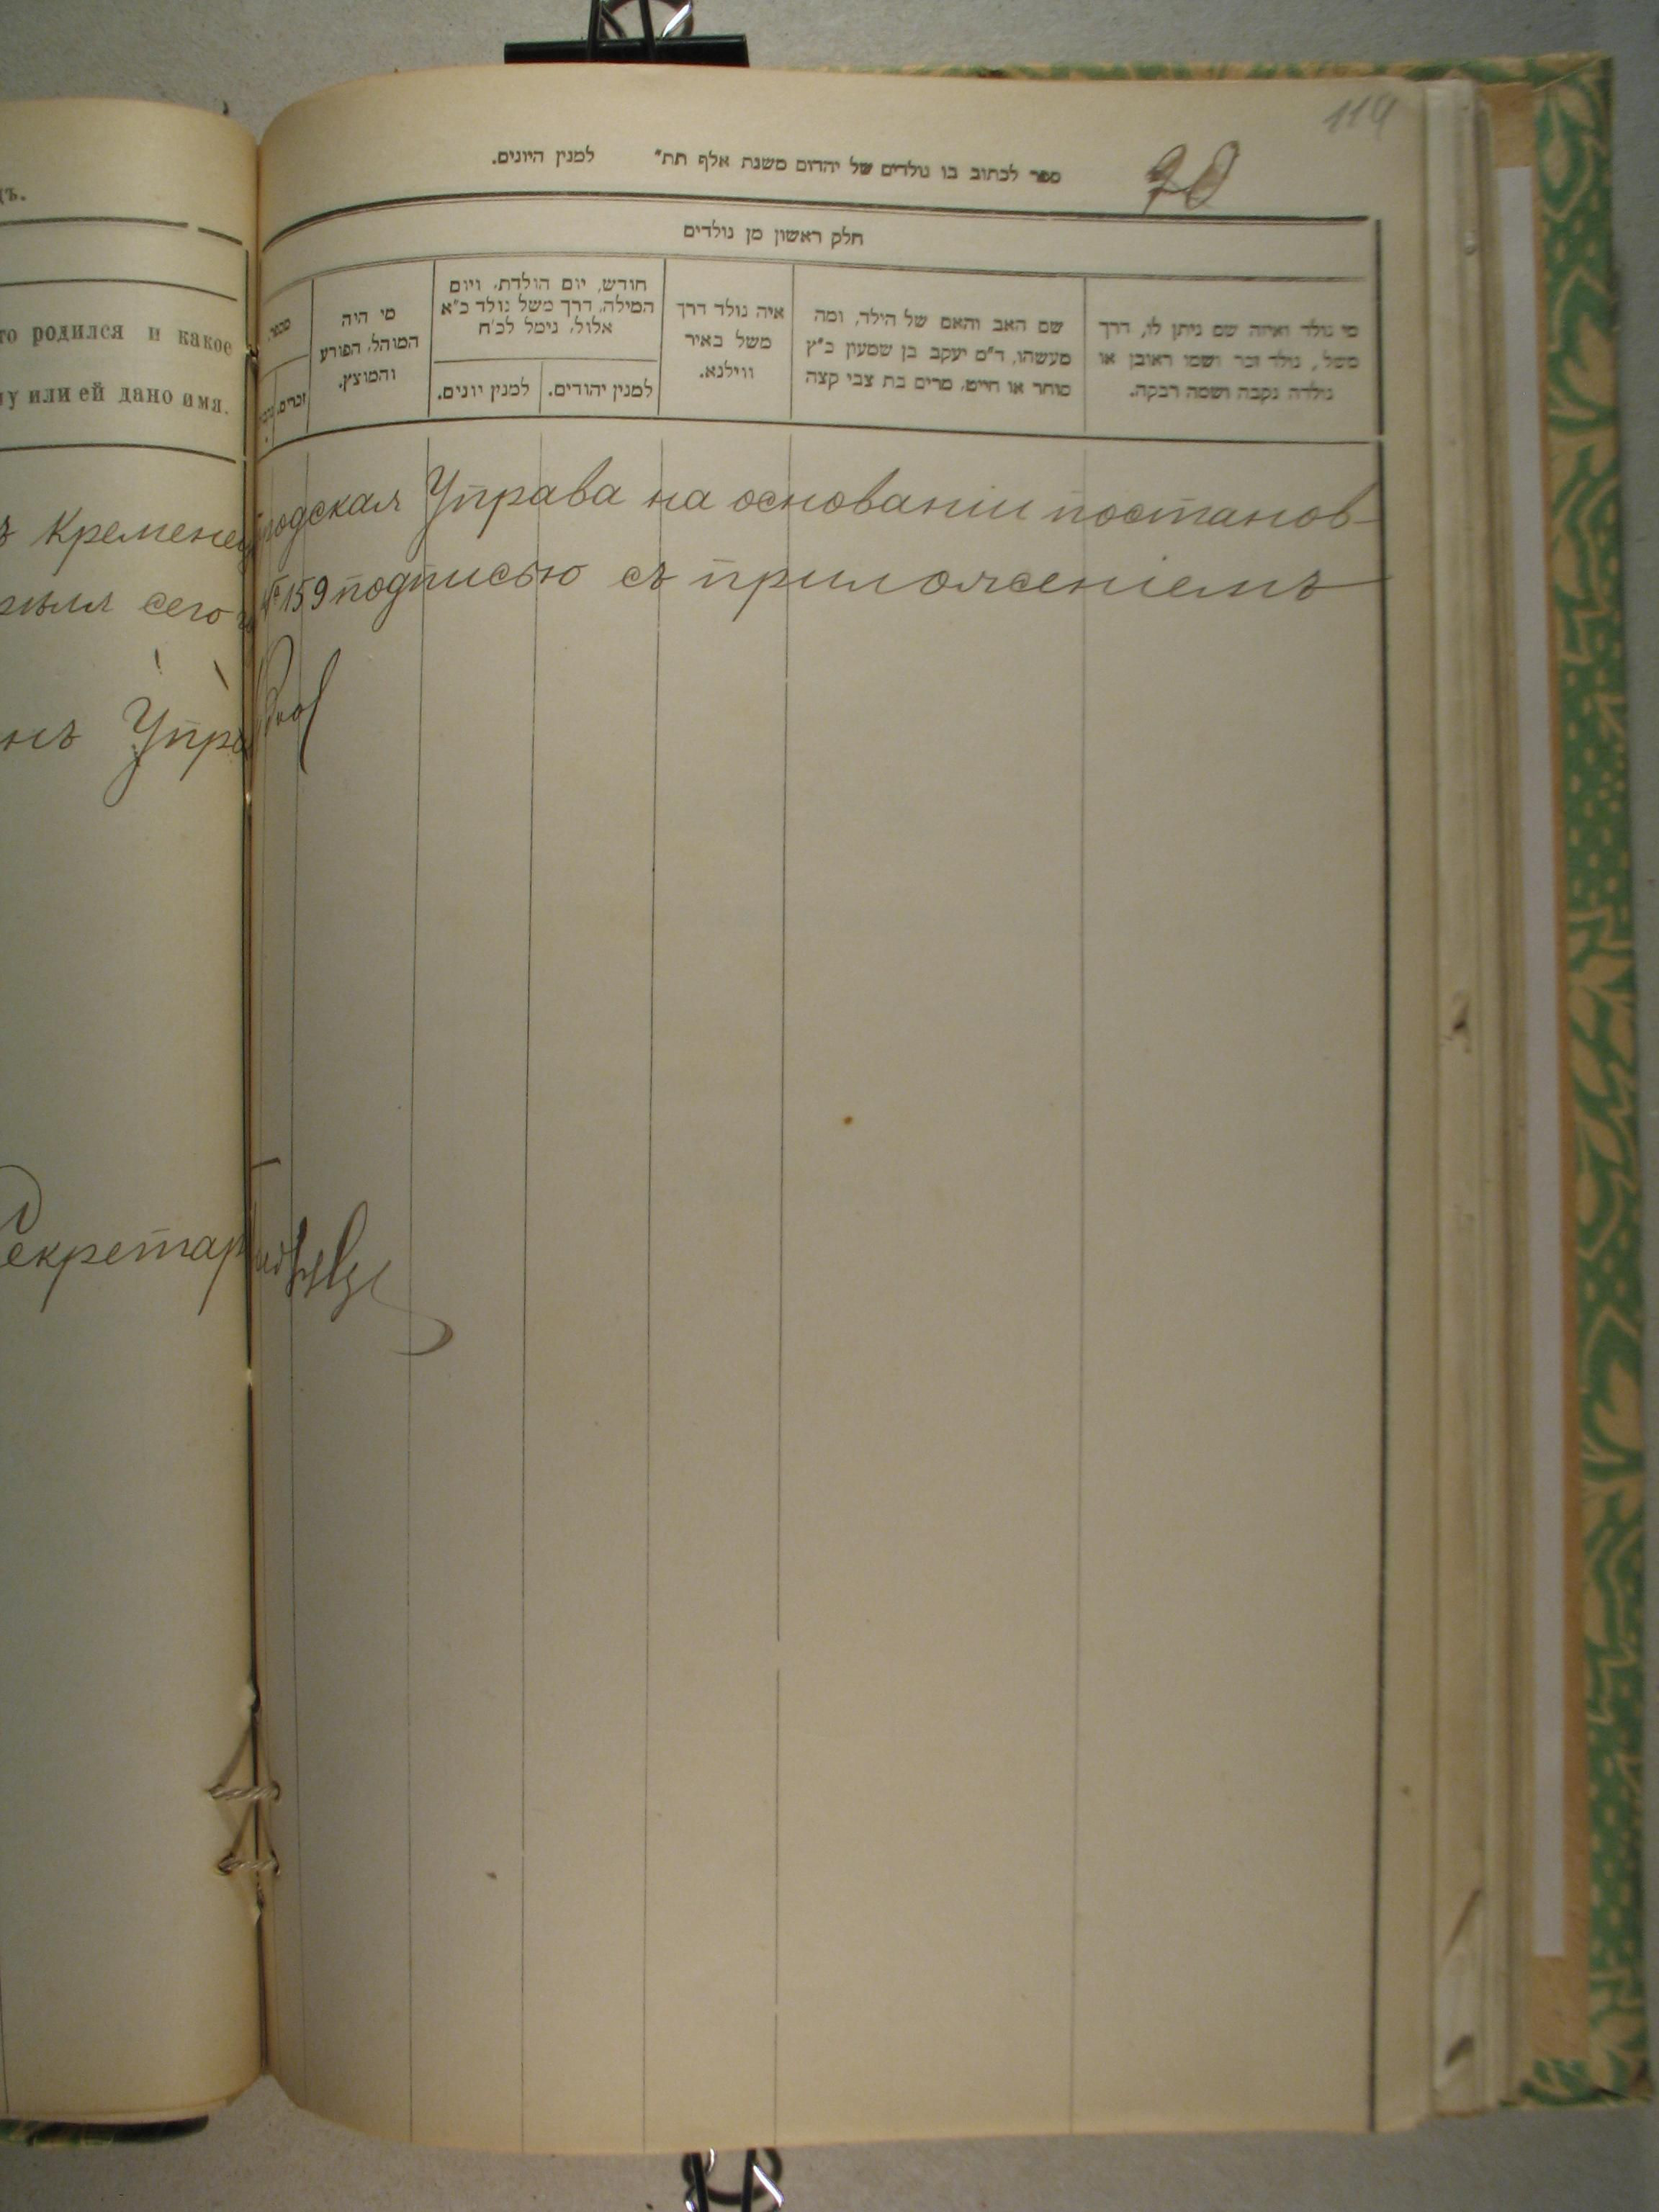 119
70
ספר לכתוב בו נולדים של יהדום משנת אלף תת״ למנין היונים.
חלק ראשון מן נולדים
מי נולד ואיזה שם ניתן לו, דרך
משל, נולד זכר ושמו ראובן או
נולדה נקבה ושמה רבקה.
שם האב והאם של הילד, ומה
מעשהו, ד״מ יעקב בן שמעון כ״ץ
סוחר או חייט, מרים בת צבי קצה
איה נולד דרך
משל באיר
ווילנא.
חודש, יום הולדת, ויום
המילה, דרך משל נולד כ״א
אלול, נימל לכ״ח
למנין יהודים.
למנין יונים.
מי היה
המוהל, הפורע
והמוצץ.
מספר
זכרים.
дъ.
то родился и какое
му или ей дано имя.
ъ Кременец
родская Управа на основаніи постанов-
сего
№ 159 подписью съ приложеніемъ
нъ Упра
Секретар